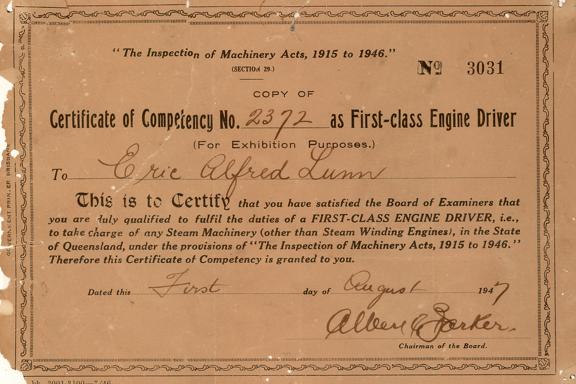 "The Inspection of Machinery Acts, 1915 to 1946."
(SECTION 29.)
No 3031
COPY OF
Certificate of Competency No. 2372 as First-class Engine Driver
(For Exhibition Purposes.)
To Eric Alfred Lunn
This is to Certify that you have satisfied the Board of Examiners that
you are duly qualified to fulfil the duties of a FIRST-CLASS ENGINE DRIVER, i.e.,
to take charge of any Steam Machinery (other than Steam Winding Engines), in the State
of Queensland, under the provisions of "The Inspection of Machinery Acts, 1915 to 1946."
Therefore this Certificate of Competency is granted to you.
Dated this First day of August 1947
Albert C Barker.
Chairman of the Board.